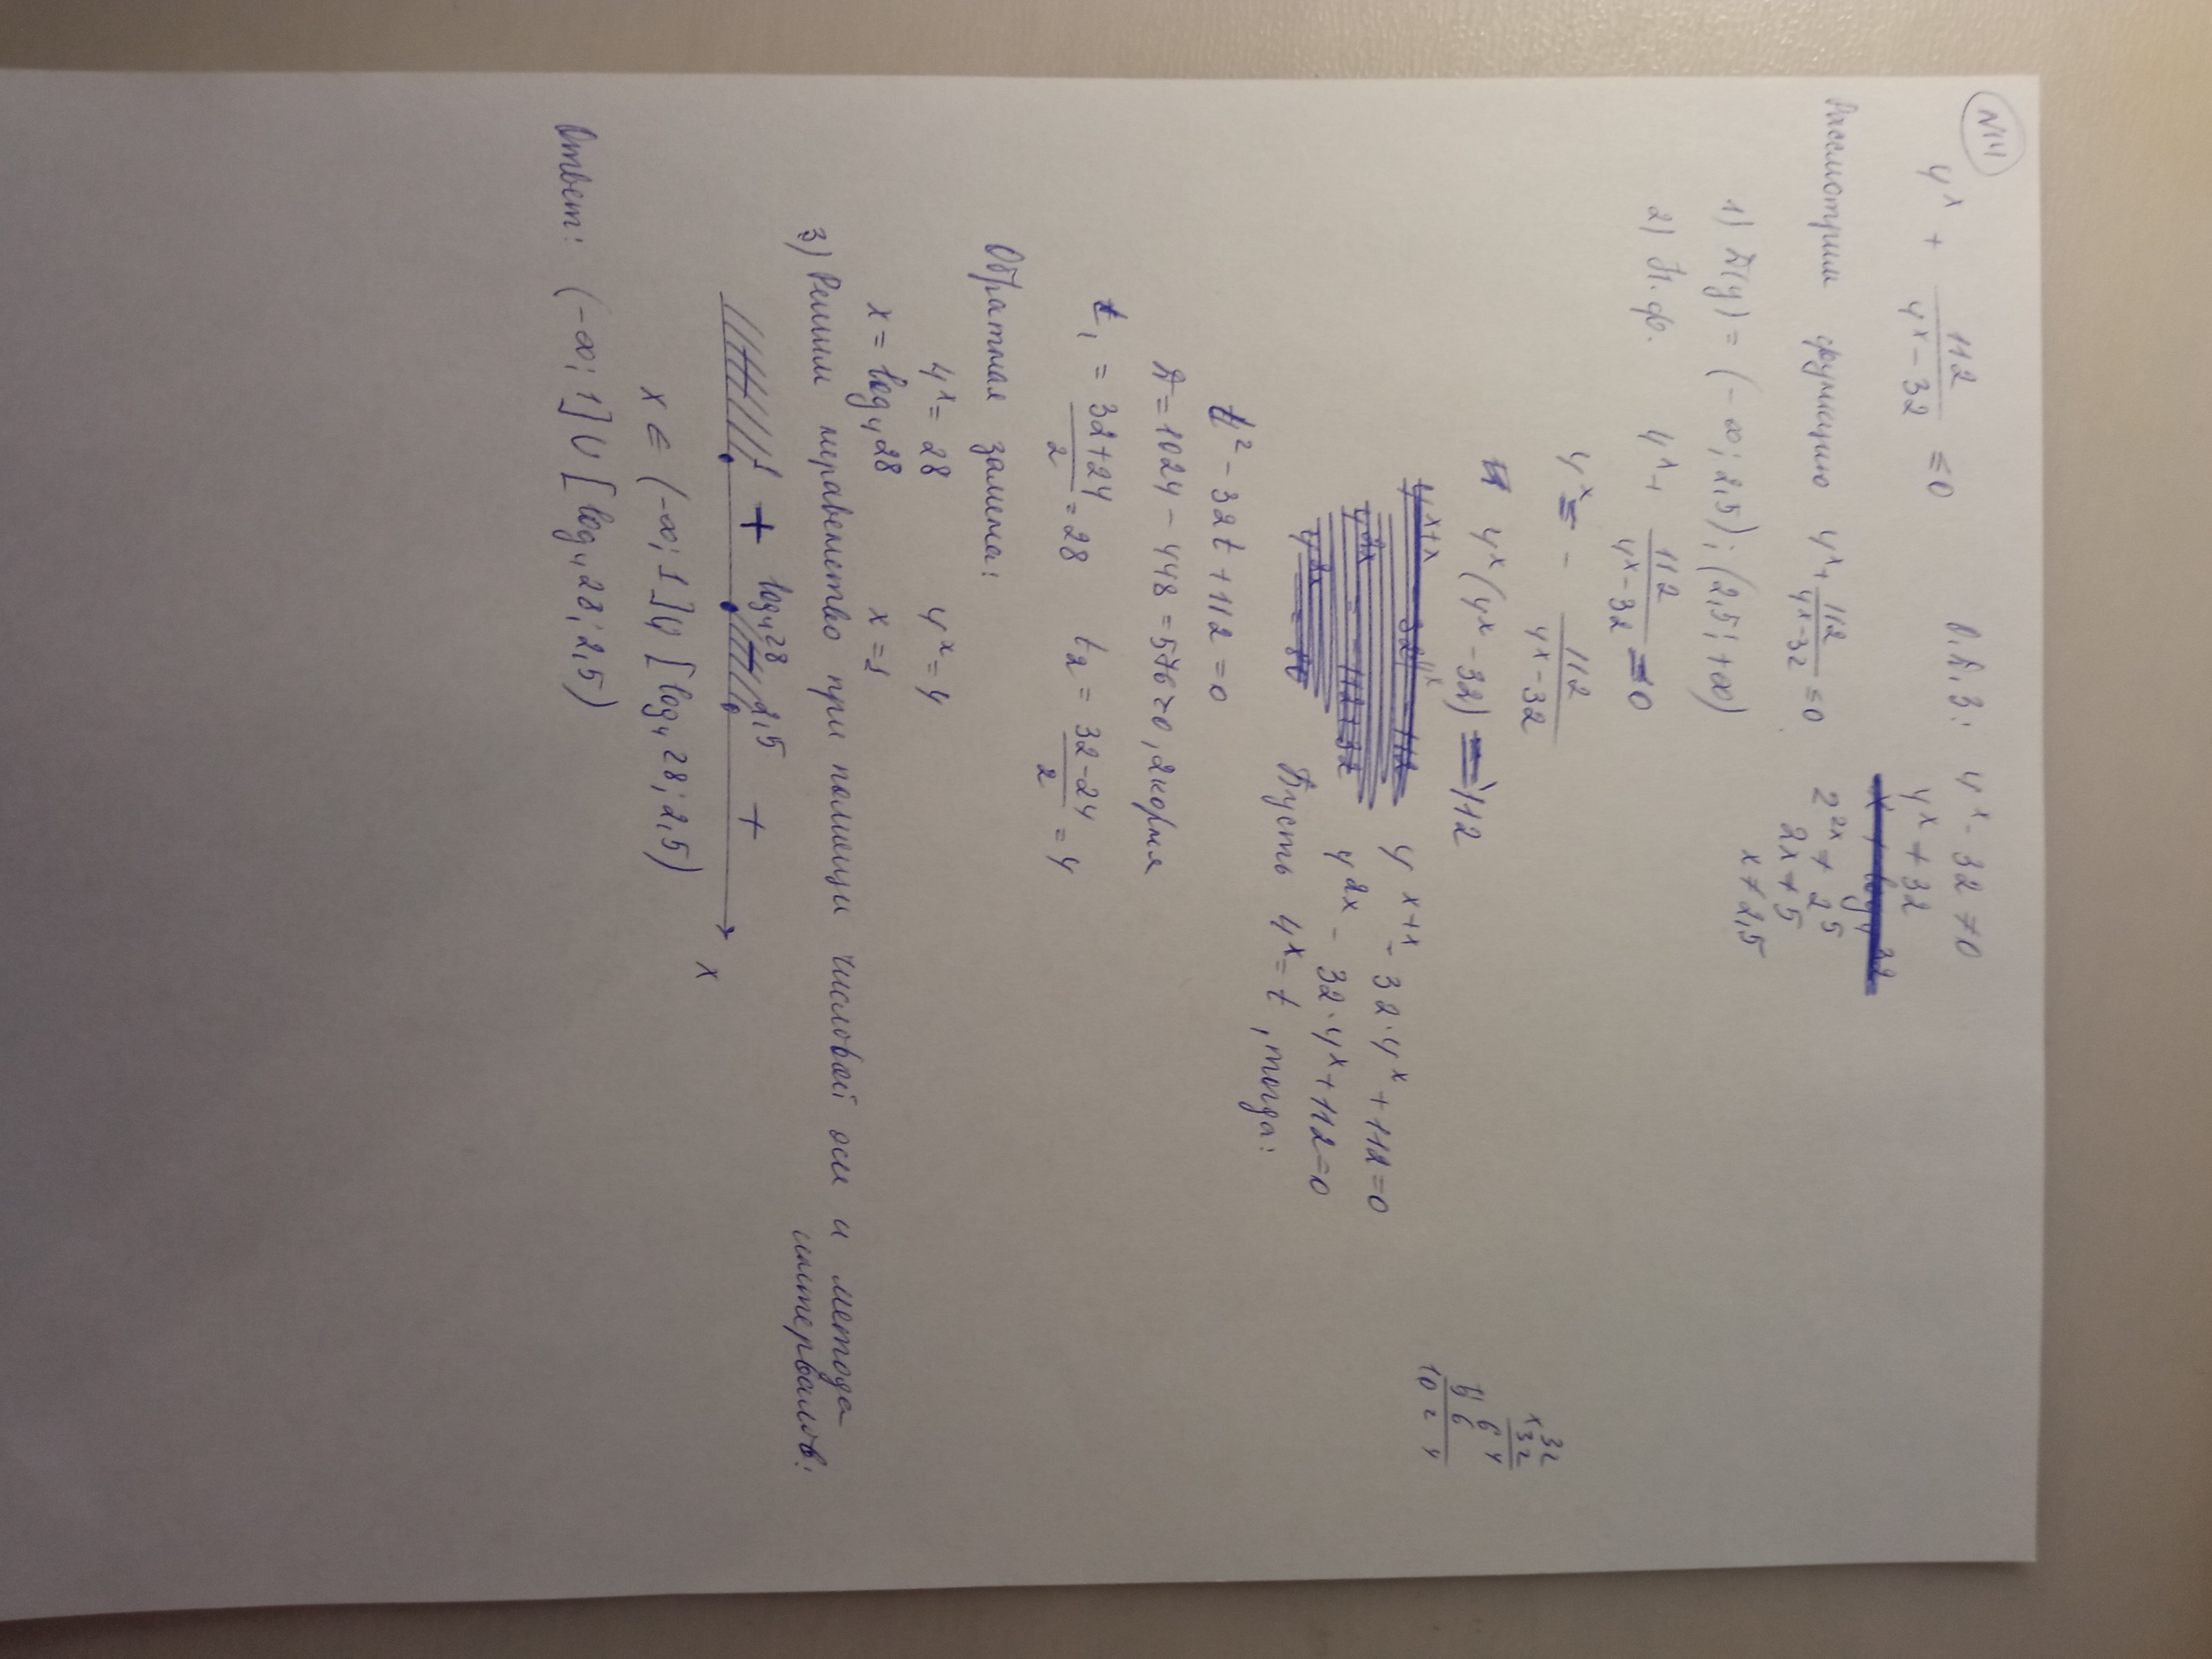 N14
4^x + 112/(4^x - 32) ≤ 0
О.Д.З: 4^x - 32 ≠ 0
4^x ≠ 32
2^2x ≠ 2^5
2x ≠ 5
x ≠ 2,5
Рассмотрим функцию 4^x + 112/(4^x - 32) ≤ 0
1) D(y) = (-∞; 2,5); (2,5; +∞)
2) Н.ф. 4^x + 112/(4^x - 32) = 0
4^x = - 112/(4^x - 32)
4^x (4^x - 32) = -112
4^x+x - 32·4^x + 112 = 0
4^2x - 32·4^x + 112 = 0
Пусть 4^x = t, тогда:
t² - 32t + 112 = 0
D = 1024 - 448 = 576 > 0, 2 корня
t₁ = (32+24)/2 = 28 t₂ = (32-24)/2 = 4
Обратная замена:
4^x = 28 4^x = 4
x = log₄28 x = 1
3) Решим неравенство при помощи числовой оси и метода
интервалов:
1 + log₄28 - 2,5 +
x
x ∈ (-∞; 1] ∪ [log₄28; 2,5)
Ответ: (-∞; 1] ∪ [log₄28; 2,5)
32
×32
64
96
1024